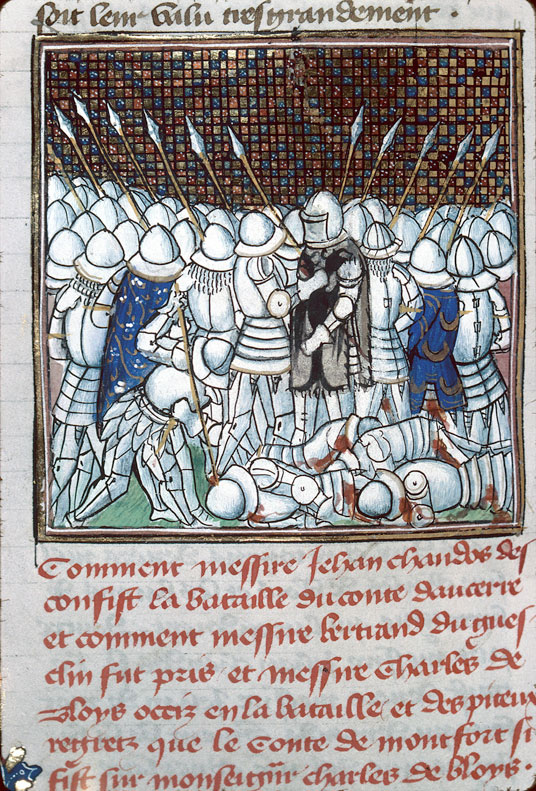 soit leur valu tresgrandement .
Comment messire Jehan chandos des
confist la bataille du conte daucerre
et comment messire bertrand du gues-
clin fut pris et messire Charles de
Bloys occiz en la bataille et des piteux
regretz que le conte de montfort si
fist sur monseigneur charles de bloys .